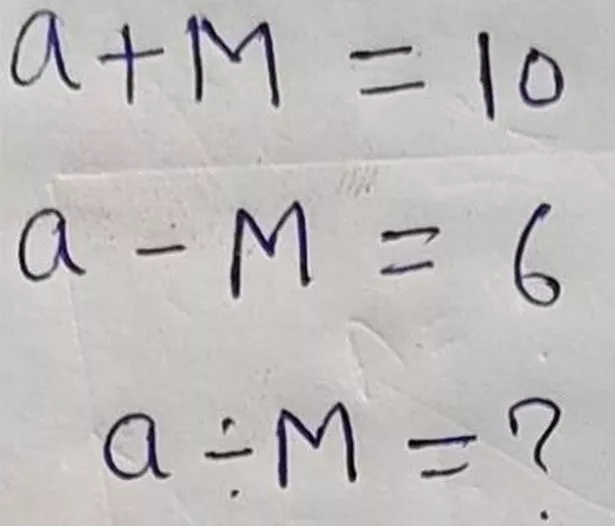 a + M = 10
a - M = 6
a ÷ M = ?